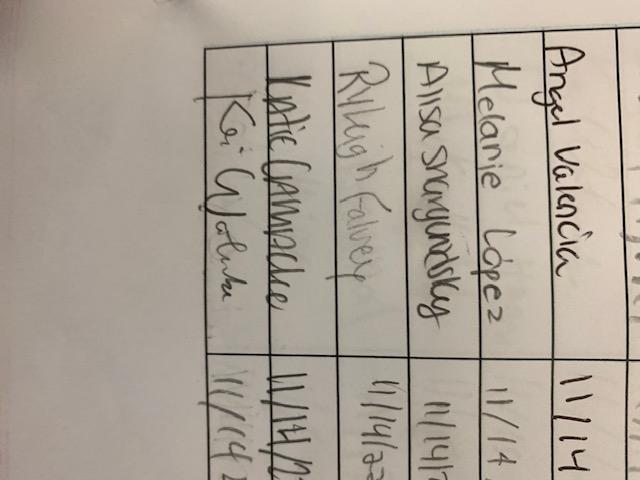 Angel Valencia 11/14
Melanie López 11/14
Alisa 11/14/2
Ryleigh Falvey 11/14/22
Katie Gampache 11/14/2
Kai 11/14